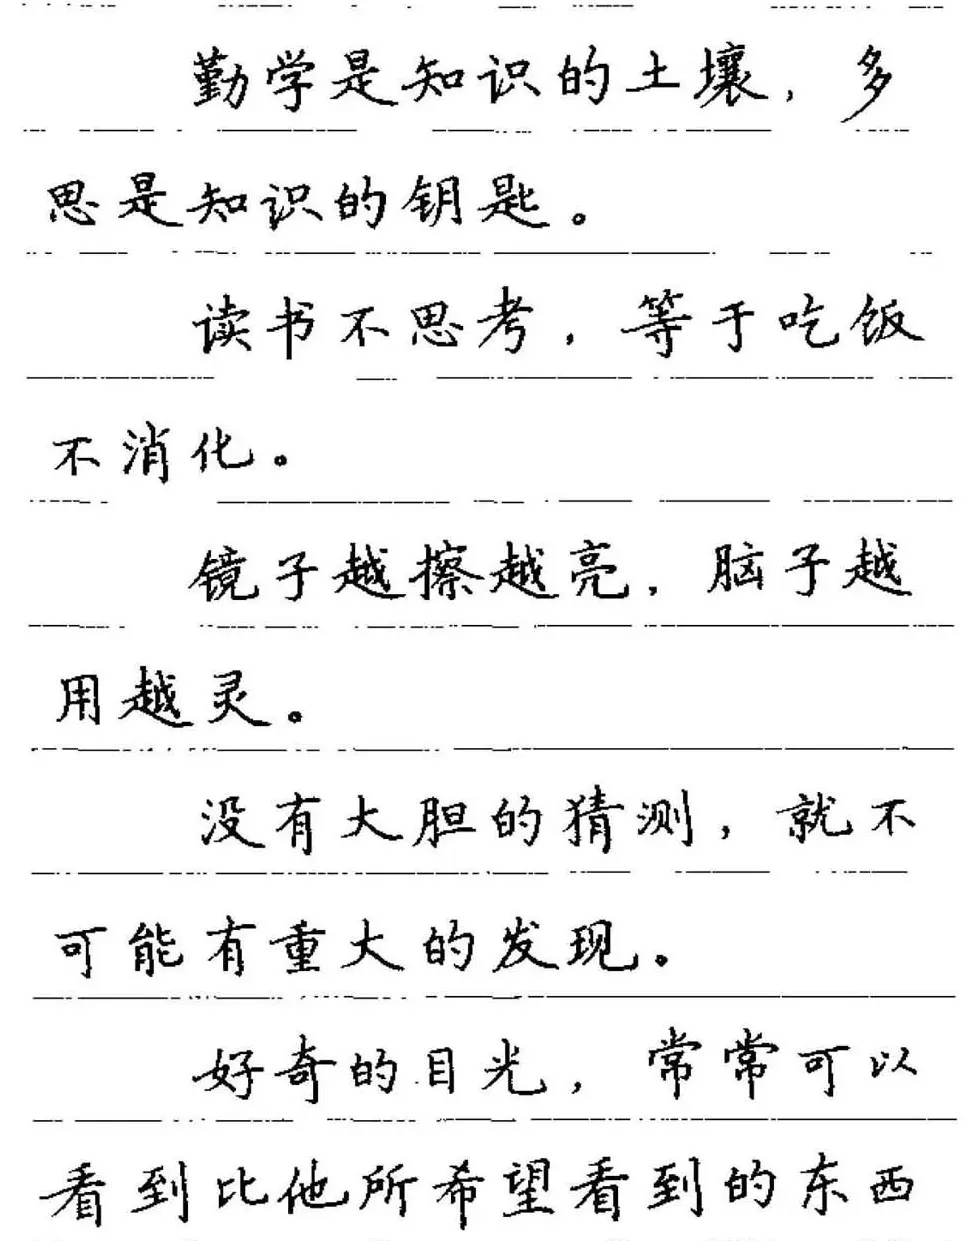 勤学是知识的土壤，多
思是知识的钥匙。
读书不思考，等于吃饭
不消化。
镜子越擦越亮，脑子越
用越灵。
没有大胆的猜测，就不
可能有重大的发现。
好奇的目光，常常可以
看到比他所希望看到的东西